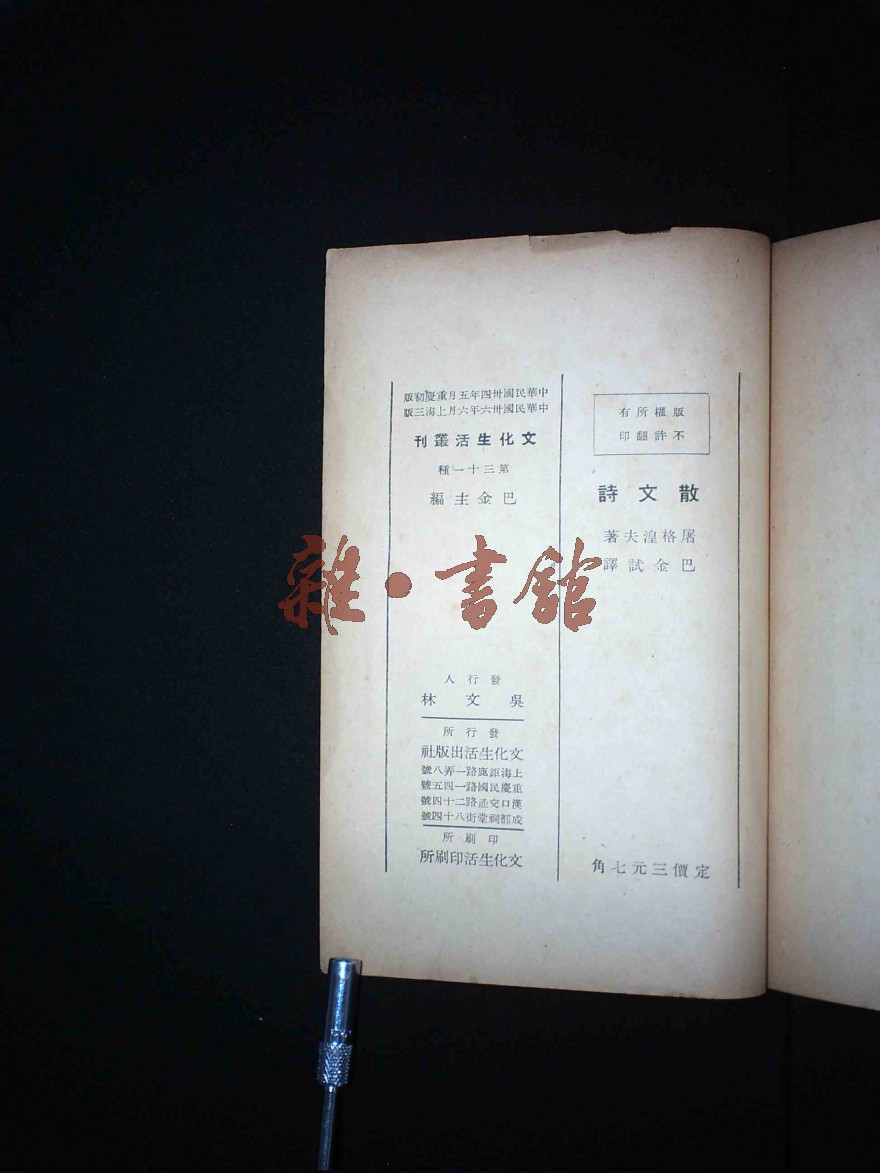 版權所有
不許翻印
散文詩
屠格湼夫著
巴金試譯
定價三元七角
中華民國卅四年五月重慶初版
中華民國卅六年六月上海三版
文化生活叢刊
第三十一種
巴金主編
發行人
吳文林
發行所
文化生活出版社
上海鉅鹿路一弄八號
重慶民國路一四五號
漢口交通路二十四號
成都祠堂街八十四號
印刷所
文化生活印刷所
雜·書館